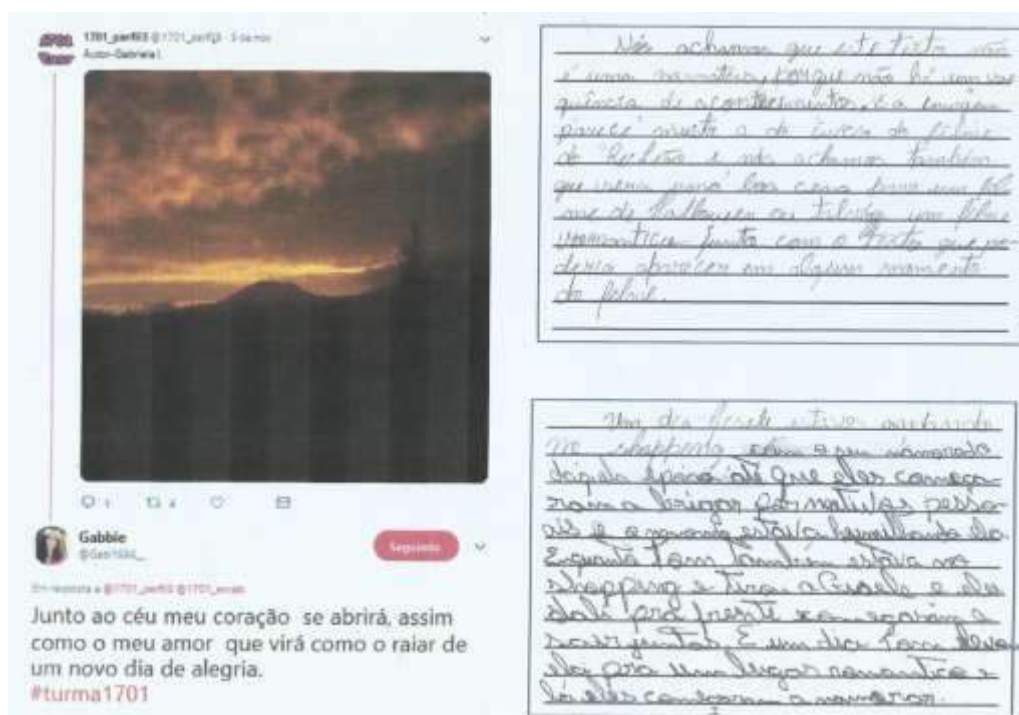 1701_perfil3 @1701_perfil3 · 3 de nov
Autor-Gabriela
Gabbie
Seguindo
Em resposta a @1701_perfil3
Junto ao céu meu coração se abrirá, assim
como o meu amor que virá como o raiar de
um novo dia de alegria.
#turma1701
Nós achamos que este texto não
é uma narrativa, porque não há um se
quência de acontecimentos, e a imagem
parece muito a do do filme
do e nós achamos também
que seria uma boa cena para um fil
me de halloween ou talvez um filme
romantico junto com o texto que po
deria aparecer em algum momento
do filme.
Um dia Gisele estava andando
no shopping com o seu namorado
daquela época até que eles começa
ram a brigar por motivos pesso
ais e o mesmo estava humilhando ela.
Enquanto Tom também estava no
shopping e a Gisele e eles
dali pra frente e
juntos. E um dia Tom levou
ela pra um lugar romantico e
lá eles começam a namorar.